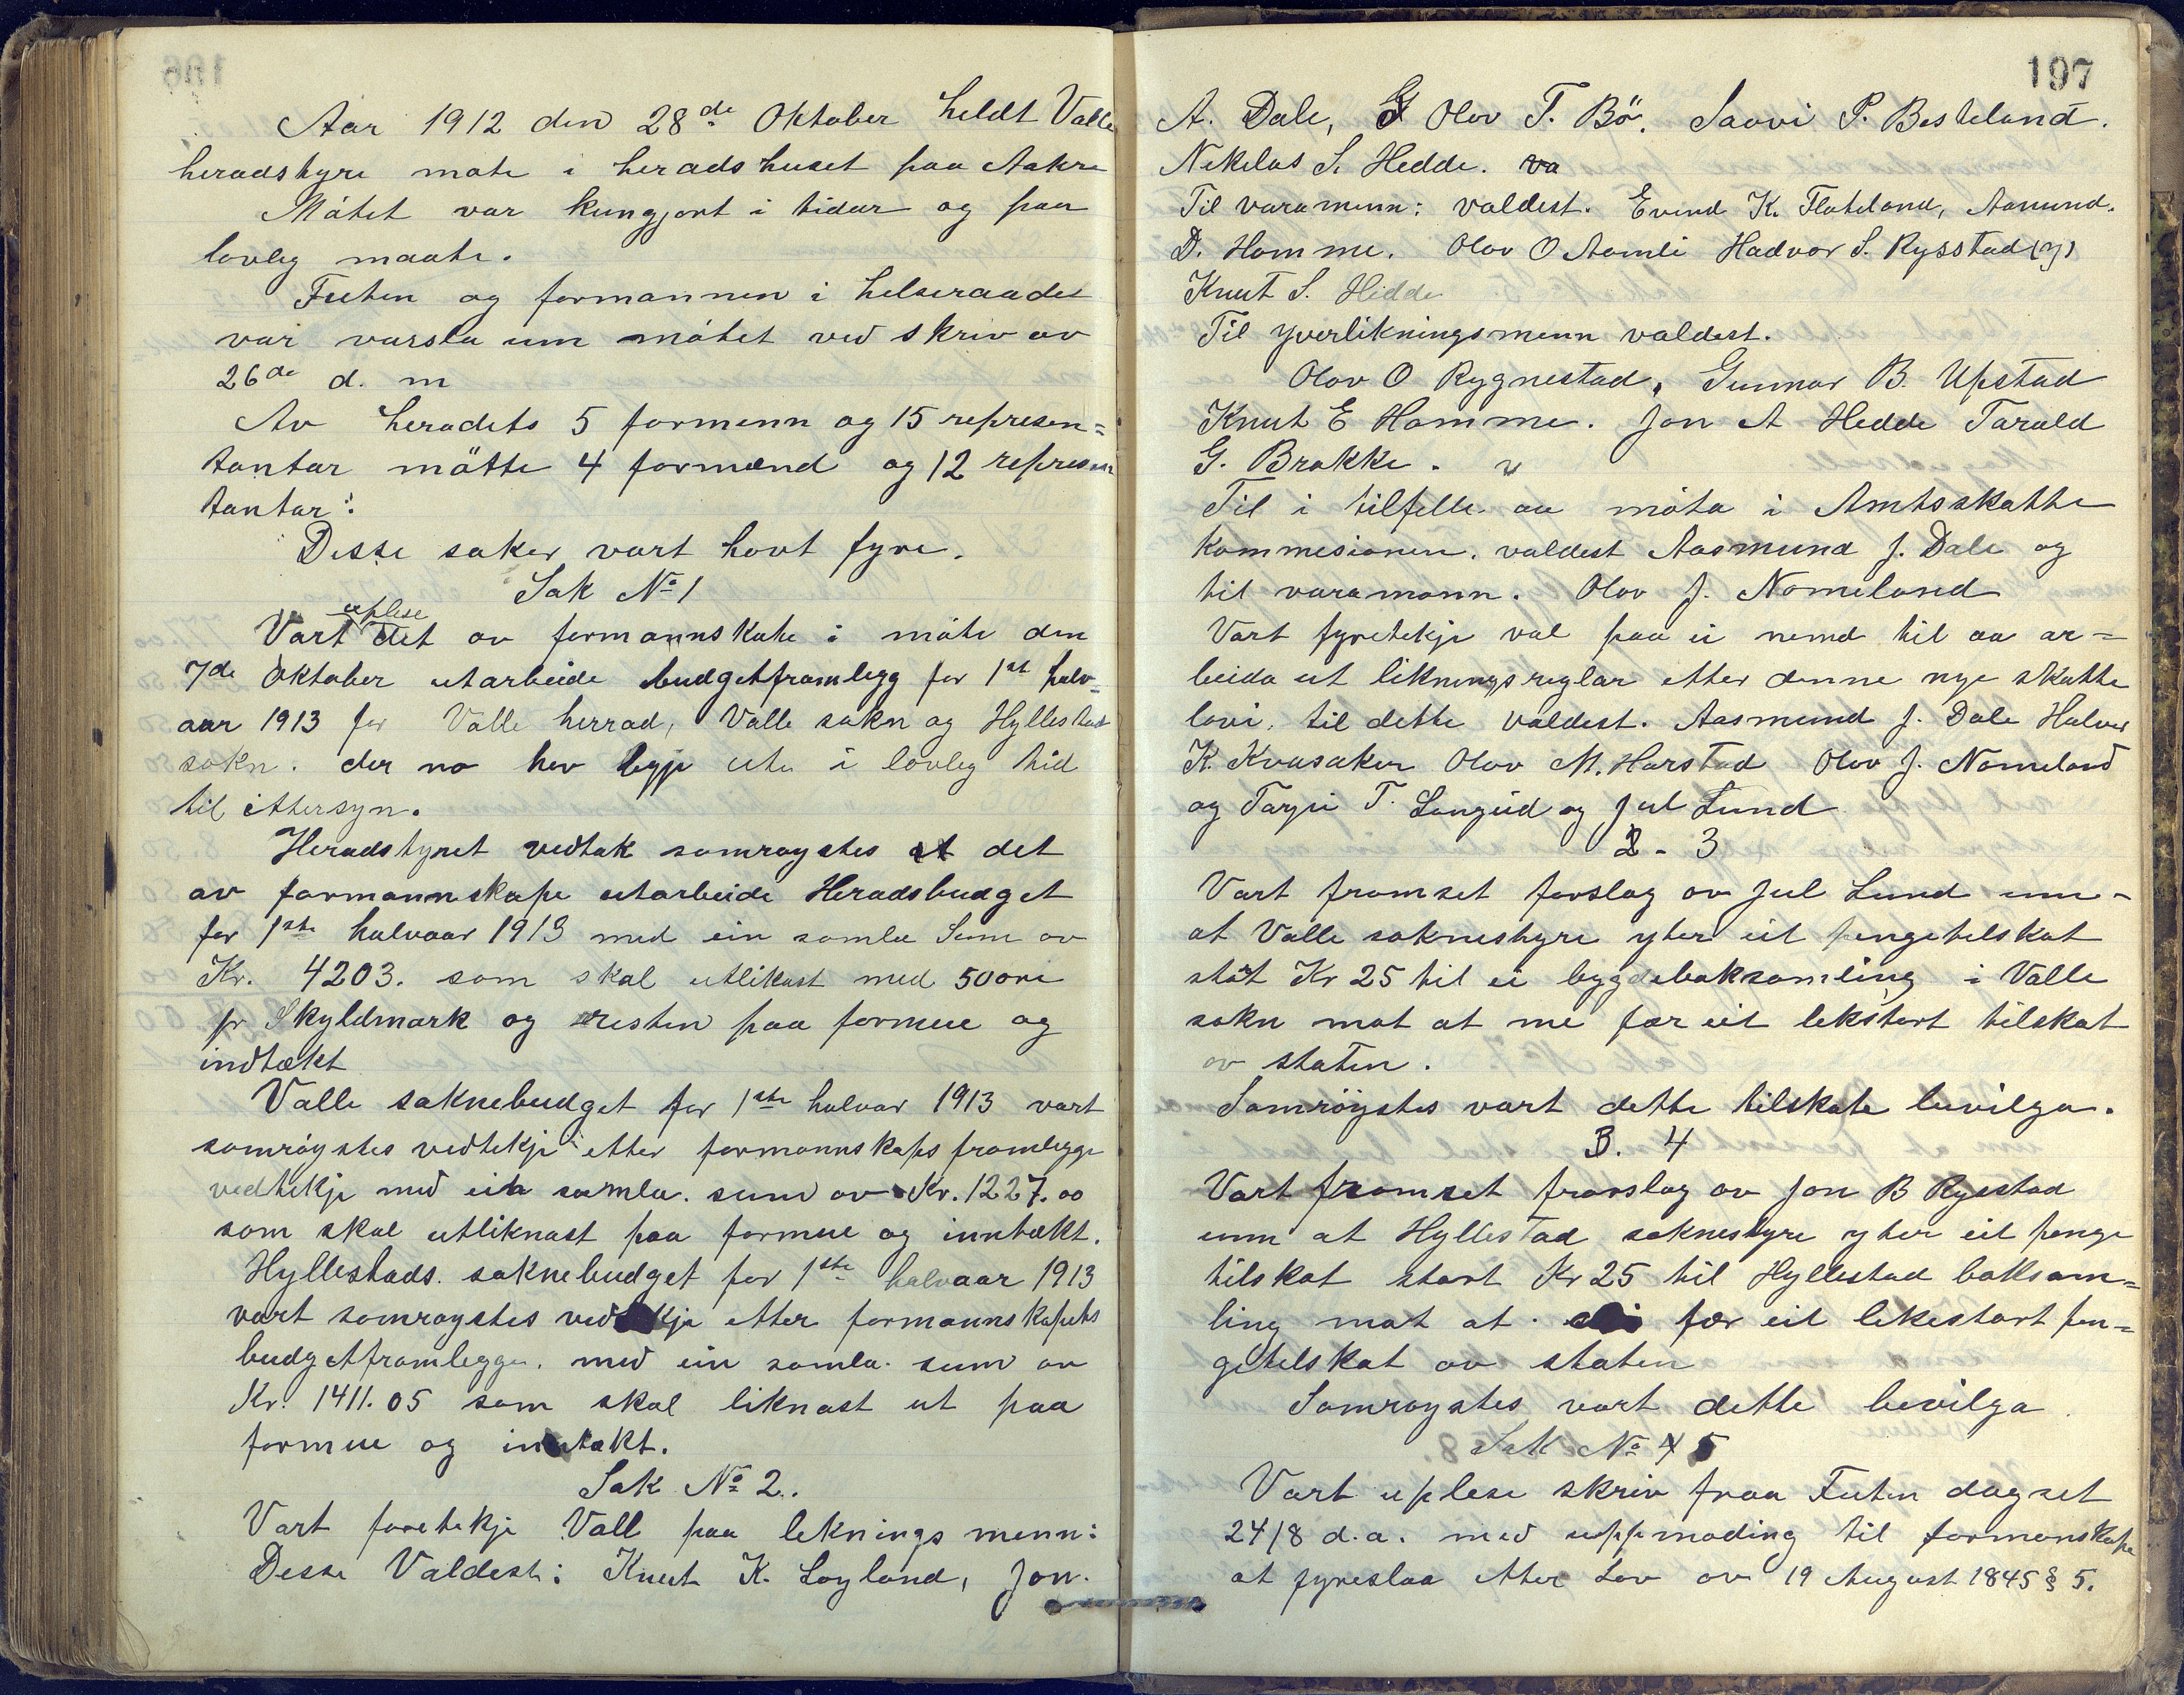 Aar 1912 den 28de Oktober heldt Valle
heradstyre møte i heradshuset paa Aakre
Møtet var kungjort i tidar og paa
lovleg maate.
Futen og formannen i helseraadet
var varsla um møtet ved skriv av
26de d. m
Av heradets 5 formenn og 15 represen=
tantar møtte 4 formænd og 12 represen
tantar:
Desse saker vart havt fyre.
Sak No 1
uplese
Vart det av formannskape i møte den
7de Oktober utarbeide budgetframlegg for 1st halv=
aar 1913 for Valle herrad, Valle sokn og Hyllestad
sokn. der no hev legje ute i lovleg tid
til ettersyn.
Heradstyret vedtok samrøystes at det
av formannskape utarbeide Heradsbudget
for 1ste halvaar 1913 med ein samla Sum av
Kr. 4203. som skal utlikast med 50 øre
pr Skyldmark og resten paa formue og
indtækt
Valle soknebudget for 1ste halvar 1913 vart
samrøystes vedtekje etter formannskaps framlegge
vedtekje med ein samla. sum av Kr. 1227.00
som skal utliknast paa formue og inntækt.
Hyllestads. soknebudget for 1ste halvaar 1913
vart samrøystes vedtekje etter formannskapets
budgetframlegge. med ein samla. sum av
Kr. 1411.05 som skal liknast ut paa
formue og inntækt.
Sak No 2.
Vart foretekje Vall paa leknings menn:
Desse Valdest: Knut K. Løyland, Jon.
197
A. Dale, Olov T. Bö. Saavi P. Besteland.
Nekelas S. Hedde. va
Til varamenn: valdest. Evend K. Flateland, Aanund.
D. Homme. Olov O Aamli Hadvor S. Rysstad (y)
Knut S. Hedde
Til yverlikningsmenn valdest.
Olov O Rygnestad, Gunnar B. Upstad
Knut E Homme. Jon A Hedde Tarald
G. Brokke.
Til i tilfelle aa møta i Amtsskatte
kommesionen. valdest Aasmund J. Dale og
til varamann. Olov J. Nomeland
Vart fyretekje val paa ei nemd til aa ar=
beida ut likningsreglar etter denne nye skatte
lovi, til dette valdest. Aasmund J. Dale Halvor
K. Kvasaker Olov M. Harstad Olov J. Nomeland
og Tarjei T. Langeid og Jul Lund
2 - 3
Vart framset forslag av Jul Lund um-
at Valle soknestyre yter eit pengetilskot
stort Kr 25 til ei bygdeboksamling i Valle
sokn mot at me fær eit lekstort tilskot
av staten.
Samrøystes vart dette tilskote bevilga.
3. 4
Vart framset fraslag av Jon B Rysstad
um at Hyllestad soknestyre yter eit penge
tilskot stort Kr 25 til Hyllestad boksam=
ling mot at fær eit likestort pen=
getilskot av staten
Samrøystes vart dette bevilga
Sak No 4 5
Vart uplese skriv fraa Futen dagset
24/8 d.a. med uppmoding til formanskape
at fyreslaa etter Lov av 19 August 1845 § 5.